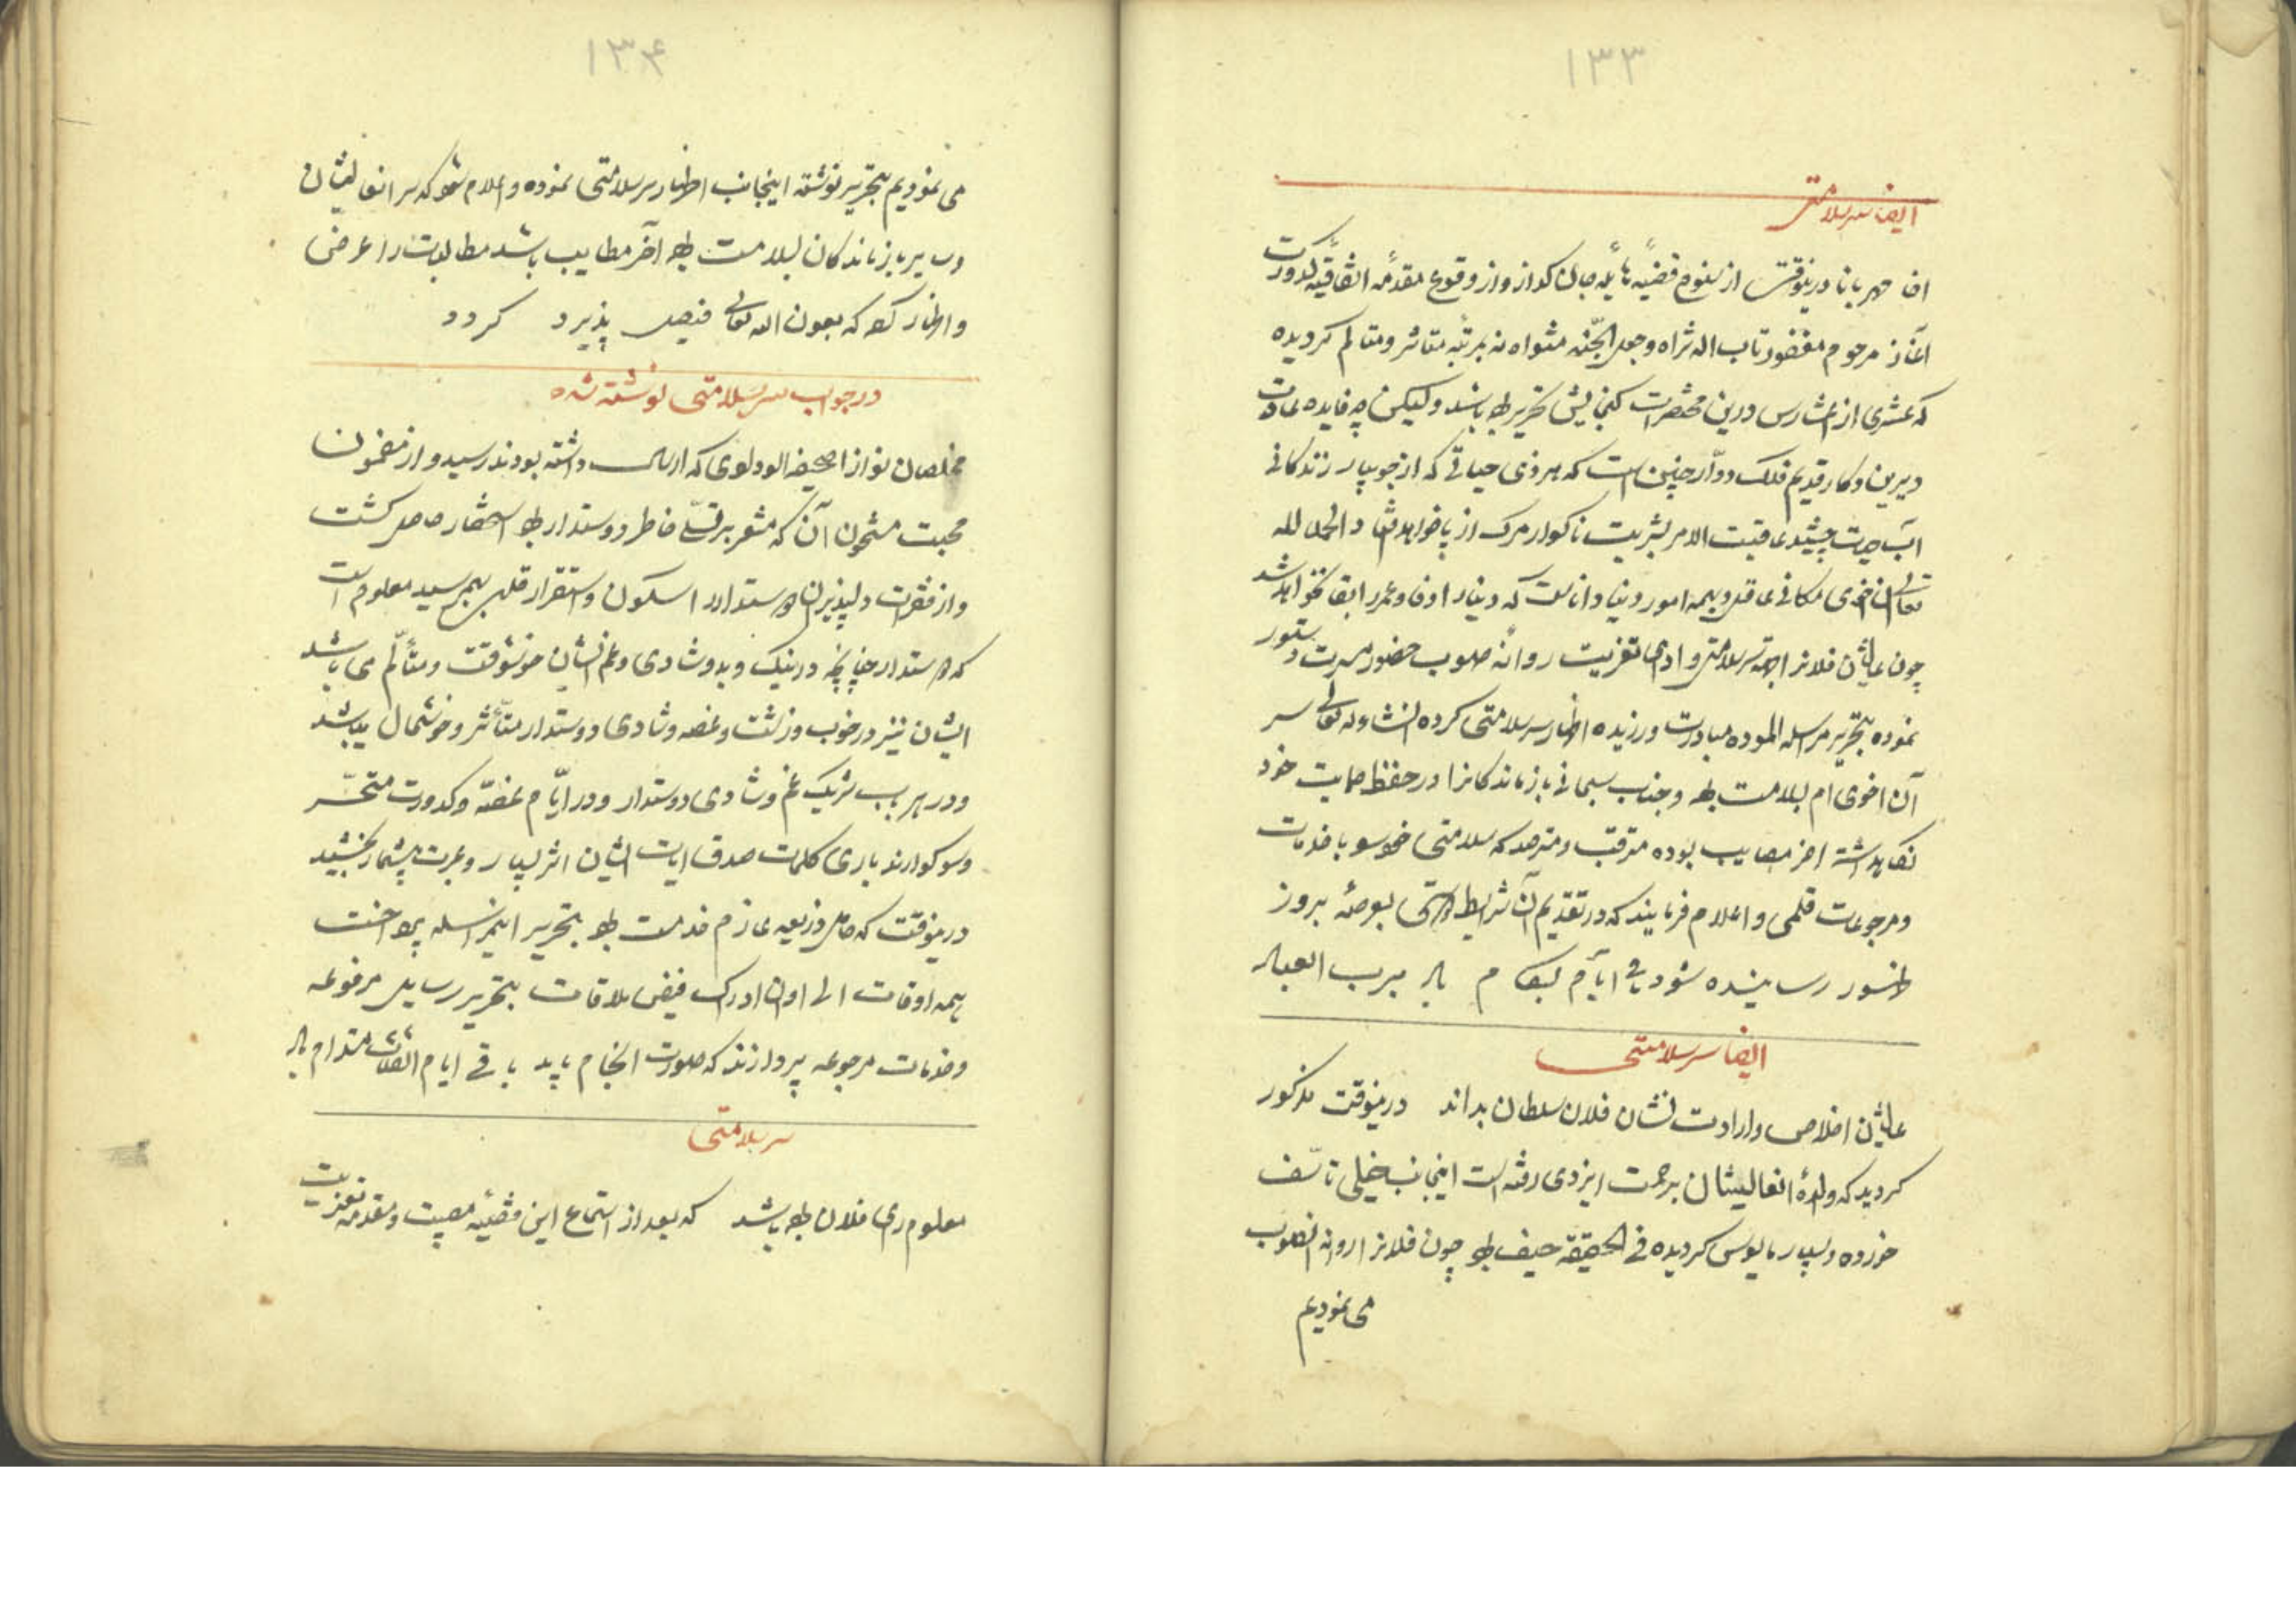 ۱۳۳
ایضا سر سلامتی
ان مهربانا درینوقت از سنوح قضیهٔ هایلهٔ جان کداز و از وقوع مقدمهٔ اتفاقیه کدورت
آغاز مرحوم مغفور تاب اله ثراه وجعل الجنه مثواه نه بمرتبه متاثر و متالم کردیده
که عشری از اعشارس درین مختصرات کنجایش تحریر باشد ولیکن چه فایده عادت
دیرین و کار قدیم فلک دوّار چنین است که هر ذی حیاتی که از جویبار زندکانی
آب حیات چشید عاقبت الامر بشربت ناکوار مرک از پا خواهد افتاد الحمد لله
تعالی ان اخوی مکانی عاقل و بهمه امور دنیا دانا است که دینار اوفا و عمر را بقا نخواهد شد
چون عالیشان فلانرا بجهته سر سلامتی و ادای تعزیت روانه صوب حضور مسرت دستور
نموده بتحریر مراسله الموده مبادرت ورزیده اظهار سر سلامتی کرده انشاء اله تعالی سر
آن اخوی ام بسلامت بوده و جناب سبحانی بازماندکانرا در حفظ حمایت خود
نکاهداشته اخر مصایب بوده مترقب و مترصد که سلامتی خود با خدمات
و مرجوعات قلمی و اعلام فرمایند که در تقدیم آن شرایط دوستی بعرصهٔ بروز
ظهور رسانیده شود باقی ایّام بکام باد برب العباد
ایضا سر سلامتی
عالیشان اخلاص و ارادت نشان فلان سلطان بداند درینوقت مذکور
کردید که والدهٔ انعالیشان برحمت ایزدی رفته است اینجانب خیلی تاسّف
خورده و بسیار مایوس کردیده فی الحقیقة حیف بود چون فلانرا روانه انصوب
می نمودیم
۱۳۴
می نمودیم بتحریر نوشته اینجانب اظهار سر سلامتی نموده و اعلام شود که سر انعالیشان
و سایر بازماندکان بسلامت بوده آخر مصایب باشد مطالبات را عرض
و اظهار کند که بعون الله تعالی فیصل پذیرد کردد
در جواب سر سلامتی نوشته شده
مخلصان نوازا صحیفه الودادی که ارسال داشته بودند رسید و از مضمون
محبت مشحون آن که مشعر بر تسلّی خاطر دوستدار بود استحضار حاصل کشت
و از فقرات دلپذیر ان دوستدار را سکون و استقرار قلب بهم رسید معلوم است
که دوستدار چنانچه در نیک و بد و شادی و غم ایشان خوشوقت و متألّم می باشد
ایشان نیز در خوب و زشت و غصه و شادی دوستدار متأثر و خوشحال میباشند
و در هر باب شریک غم و شادی دوستدار و در ایّام غصّه و کدورت متحسّر
و سوکوارند باری کلمات صدق ایات ایشان اثر بسیار و عبرت بیشمار بخشید
درینوقت که حامل ذریعه عازم خدمت بود بتحریر اینمراسله پرداخت
همه اوقات الی اوان ادراک فیض ملاقات بتحریر رسایل مرفوعه
و خدمات مرجوعه پردازند که صورت انجام یابد باقی ایام التفات مستدام باد
سر سلامتی
معلوم رای فلان بوده باشد که بعد از استماع این قضیّهٔ مصیبت و مقدمه تعزیت